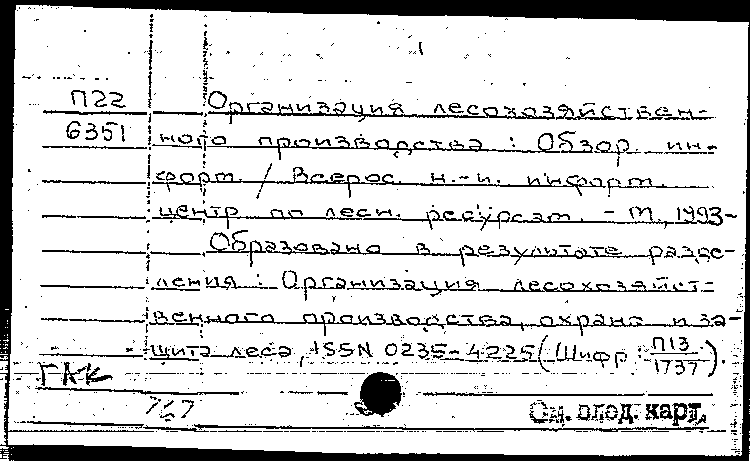 1
П22 Организация лесохозяйствен-
6351 ного производства : Обзор. ин-
форм. / Всерос. н.-и. информ.
центр по лесн. ресурсам. - М., 1993-
Образовано в результате разде-
ления : Организация лесохозяйст-
венного производства, охрана и за-
щита леса, ISSN 0235-4225 (Шифр : П13/1737).
ГАК
767
См. след. карт.